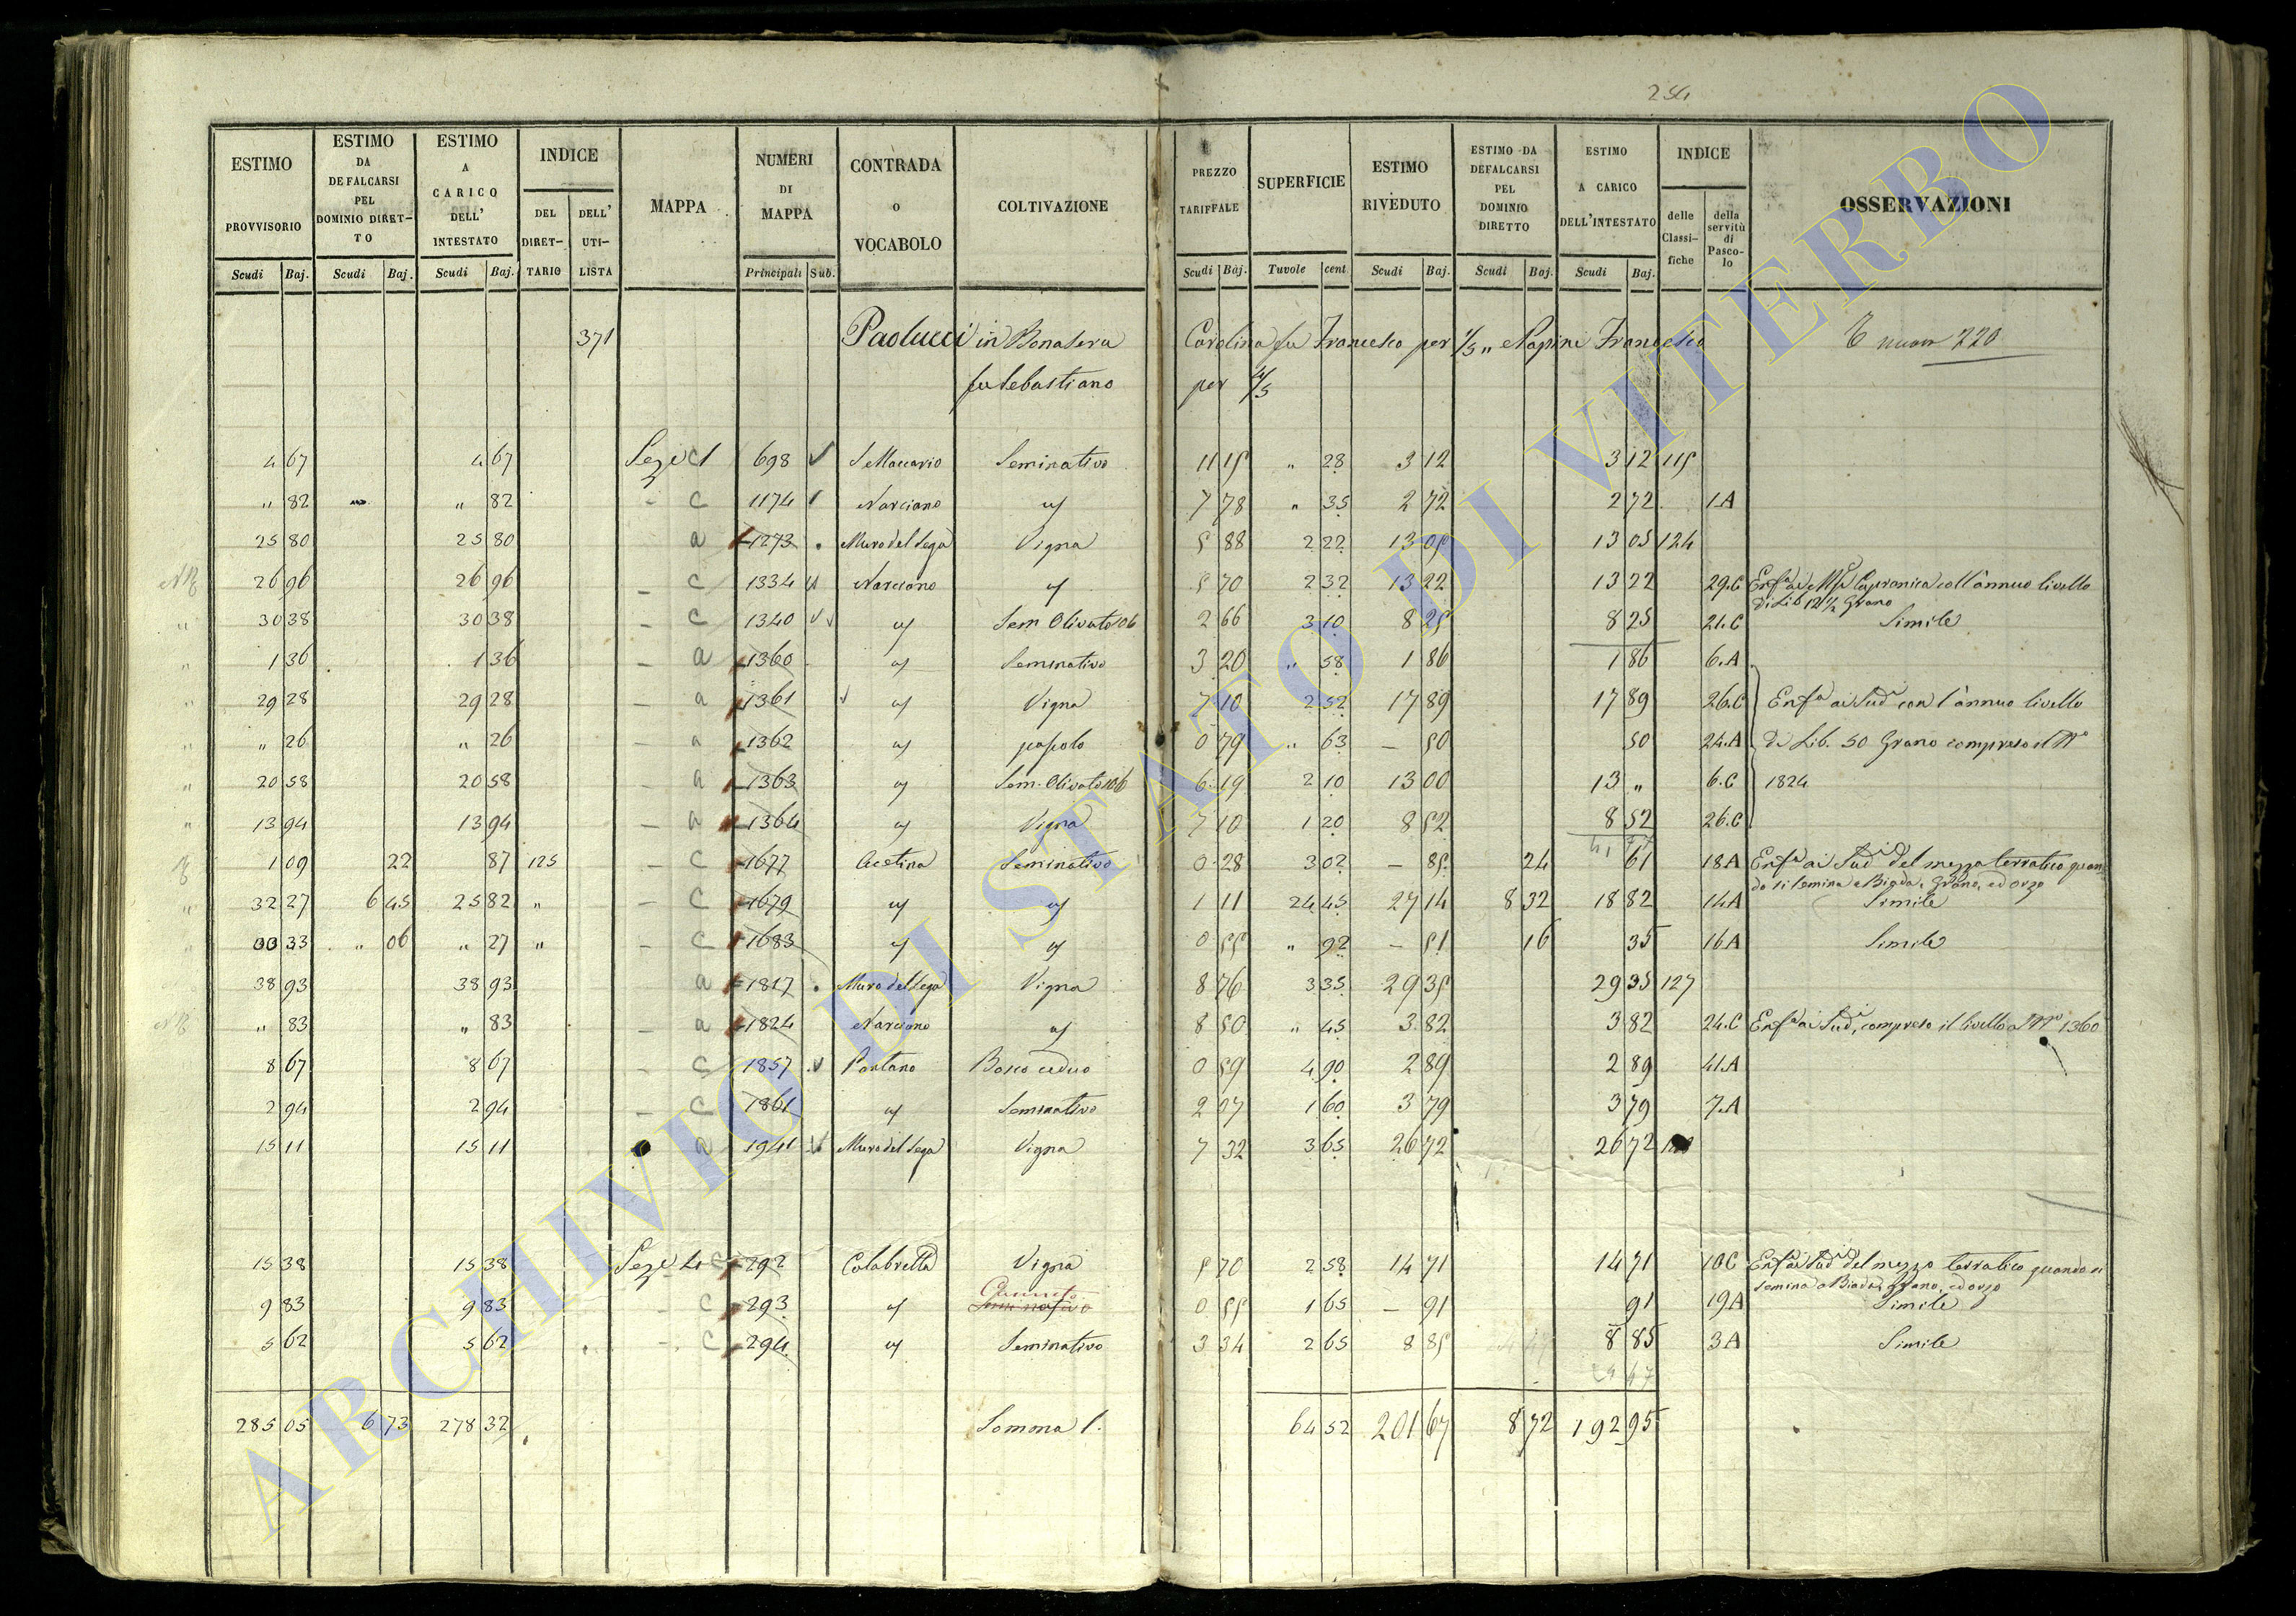 254
ESTIMO PROVVISORIO Scudi Baj.
ESTIMO DA DEFALCARSI PEL DOMINIO DIRET-TO Scudi Baj.
ESTIMO A CARICO DELL' INTESTATO Scudi Baj.
INDICE DEL DIRET-TARIO DELL' UTI-LISTA
MAPPA
NUMERI DI MAPPA Principali Sub.
CONTRADA O VOCABOLO
COLTIVAZIONE
PREZZO TARIFFALE Scudi Baj.
SUPERFICIE Tavole cent
ESTIMO RIVEDUTO Scudi Baj.
ESTIMO DA DEFALCARSI PEL DOMINIO DIRETTO Scudi Baj.
ESTIMO A CARICO DELL'INTESTATO Scudi Baj.
INDICE delle Classi-fiche della servitù di Pasco-lo
OSSERVAZIONI
371 Paolucci in Bonasera Carolina fu Francesco per 1/5 „ Papini Francesco 220
fu Sebastiano per 4/5
4 67 4 67 Seze 1 C 698 S Maccario Seminativo 11 15 „ 28 3 12 3 12 115
„ 82 „ 82 - C 1174 Narciano id 7 78 „ 35 2 72 2 72 1.A
25 80 25 80 a 1273 Muro del Sega Vigna 5 88 2 22 13 05 13 05 124
NB 26 96 26 96 - C 1334 Narciano id 5 70 2 32 13 22 13 22 29.C Enfa ai Capranica coll'annuo livello
di Lib 12 1/2 Grano
„ 30 38 30 38 - C 1340 id Sem Olivato 106 2 66 3 10 8 25 8 25 21.C Simile
„ 1 36 1 36 - a 1360 id Seminativo 3 20 „ 58 1 86 1 86 6.A
„ 29 28 29 28 - a 1361 id Vigna 7 10 2 52 17 89 17 89 26.C Enfa ai Sudi con l'annuo livello
„ „ 26 „ 26 - a 1362 id pascolo 0 79 „ 63 - 50 50 24.A di Lib. 50 Grano compreso il No
„ 20 58 20 58 - a 1363 id Sem. Olivato 106 6 19 2 10 13 00 13 „ 6.C 1824
„ 13 94 13 94 - a 1364 id Vigna 7 10 1 20 8 52 8 52 26.C
1 09 22 87 125 - C 1677 Acetina Seminativo 0 28 3 02 - 85 24 61 18A Enfa ai Sudi del mezzo terratico quan
do si semina a Biada, Grano, ed orzo
„ 32 27 6 45 25 82 „ - C 1679 id id 1 11 24 45 27 14 8 32 18 82 14A Simile
33 „ 06 „ 27 „ - C 1683 id id 0 55 „ 92 - 51 16 35 16A Simile
38 93 38 93 a 1817 Muro del Sega Vigna 8 76 3 35 29 35 29 35 127
NB „ 83 „ 83 - a 1824 Narciano id 8 50 „ 45 3 82 3 82 24.C Enfa ai Sudi, compreso il livello al No 1360
8 67 8 67 - C 1857 Pantano Bosco ceduo 0 59 4 90 2 89 2 89 41.A
2 94 2 94 - C 1861 id Seminativo 2 37 1 60 3 79 3 79 7.A
15 11 15 11 a 1941 Muro del Sega Vigna 7 32 3 65 26 72 26 72
15 38 15 38 Seze 4 C 292 Colabrella Vigna 5 70 2 58 14 71 14 71 10C Enfa ai Sudi del mezzo terratico quando si
semina a Biada, Grano, ed orzo
9 83 9 83 - C 293 id Seminativo 0 55 1 65 - 91 91 19A Simile
5 62 5 62 - C 294 id Seminativo 3 34 2 65 8 85 8 85 3A Simile
285 05 6 73 278 32 Somma 1. 64 52 201 67 8 72 192 95
ARCHIVIO DI STATO DI VITERBO